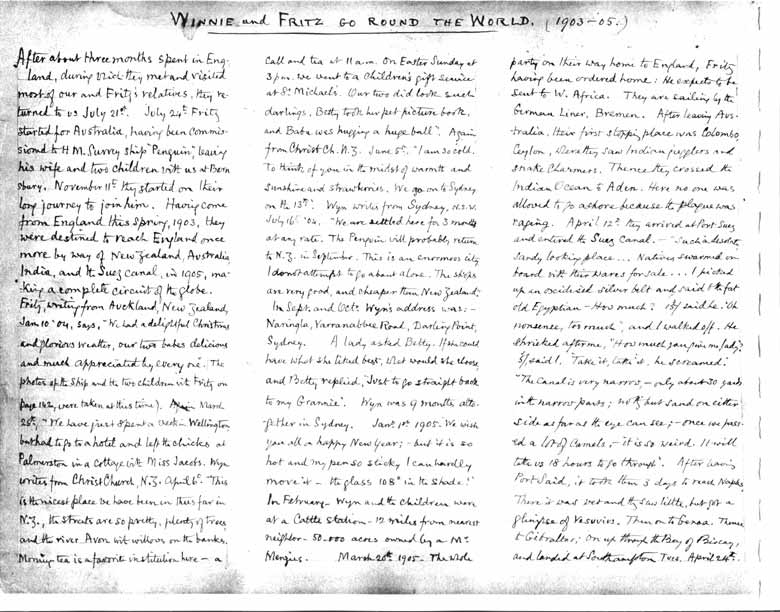 WINNIE and FRITZ GO ROUND THE WORLD. (1903-05.)
After about three months spent in Eng-
land, during which they met and visited
most of our and Fritz's relatives, they re-
turned to us July 21st. July 24th Fritz
started for Australia, having been commis-
sioned to H.M. Survey ship "Penguin", leaving
his wife and two children with us at Bern
November 11th they started on their
long journey to join him. Having come
from England this Spring, 1903, they
were destined to reach England once
more by way of New Zealand, Australia,
India, and the Suez Canal, in 1905, ma-
king a complete circuit of the globe.
Fritz, writing from Auckland, New Zealand,
Jan 10th '04, says, "We had a delightful Christmas
and glorious weather, our two babes delicious
and much appreciated by every one. The
photos of the Ship and the two children with Fritz on
page 142, were taken at this time). March
25th, "We have just spent a week in Wellington
but had to go to a hotel and left the chicks at
Palmerston in a cottage with Miss Jacobs. Wyn
writes from Christ Church, N.Z. April 6th. "This
is the nicest place we have been in thus far in
N.Z., the streets are so pretty, plenty of trees
and the river Avon with willows on the banks.
Morning tea is a favorite institution here - a
call and tea at 11 a.m. On Easter Sunday at
3 p.m. we went to a Children's gift service
at St Michael's. Our two did look such
darlings, Betty took her pet picture book,
and Babe was hugging a huge ball". Again
from Christ Ch. N.Z. June 5th, "I am so cold.
To think of you in the midst of warmth and
sunshine and strawberries. We go on to Sydney
on the 13th". Wyn writes from Sydney, N.S.W.
July 16th '04. "We are settled here for 3 months
at any rate. The Penguin will probably return
to N.Z. in September. This is an enormous city
I don't attempt to go about alone. The shops
are very good, and cheaper than New Zealand."
In Sept. and Octr. Wyn's address was: -
Naringla, Yarranabbee Road, Darling Point,
Sydney. A lady asked Betty. If she could
have what she liked best, what would she choose,
and Betty replied, "Just to go straight back
to my Grannie". Wyn was 9 months alto-
gether in Sydney. Jan. 1st 1905. We wish
you all a happy New Year; - but it is so
hot and my pen so sticky I can hardly
move it - the glass 108° in the shade!"
In February - Wyn and the children were
at a Cattle station - 12 miles from nearest
neighbor - 50.000 acres owned by a Mr
Menzies. March 20th 1905 - The whole
party on their way home to England, Fritz
having been ordered home: He expects to be
sent to W. Africa. They are sailing by the
German Liner, Bremen. After leaving Aus-
tralia, their first stopping place was Colombo,
Ceylon, where they saw Indian jugglers and
snake charmers. Thence they crossed the
Indian Ocean to Aden. Here no one was
allowed to go ashore because the plague was
raging. April 12th they arrived at Port Suez
and entered the Suez Canal. - "Such a desolate,
sandy looking place... Natives swarmed on
board with their wares for sale... I picked
up an oxidised silver belt and said to the fat
old Egyptian - How much? said he. "Oh
nonsense, too much", and I walked off. He
shrieked after me, "How much you give me, lady?
3/ said I. "Take it, take it, he screamed."
"The Canal is very narrow, - only about 30 yards
in the narrow parts; nothg but sand on either
side as far as the eye can see; - once we pass-
ed a lot of Camels, - it is so weird. It will
take us 18 hours to go through". After leaving
Port Said, it took them 3 days to reach Naples
There it was wet and they saw little, but got a
glimpse of Vesuvius. Then on to Genoa. Thence
to Gibraltar; on up through the Bay of Biscay,
and landed at Southampton Tues. April 24th.